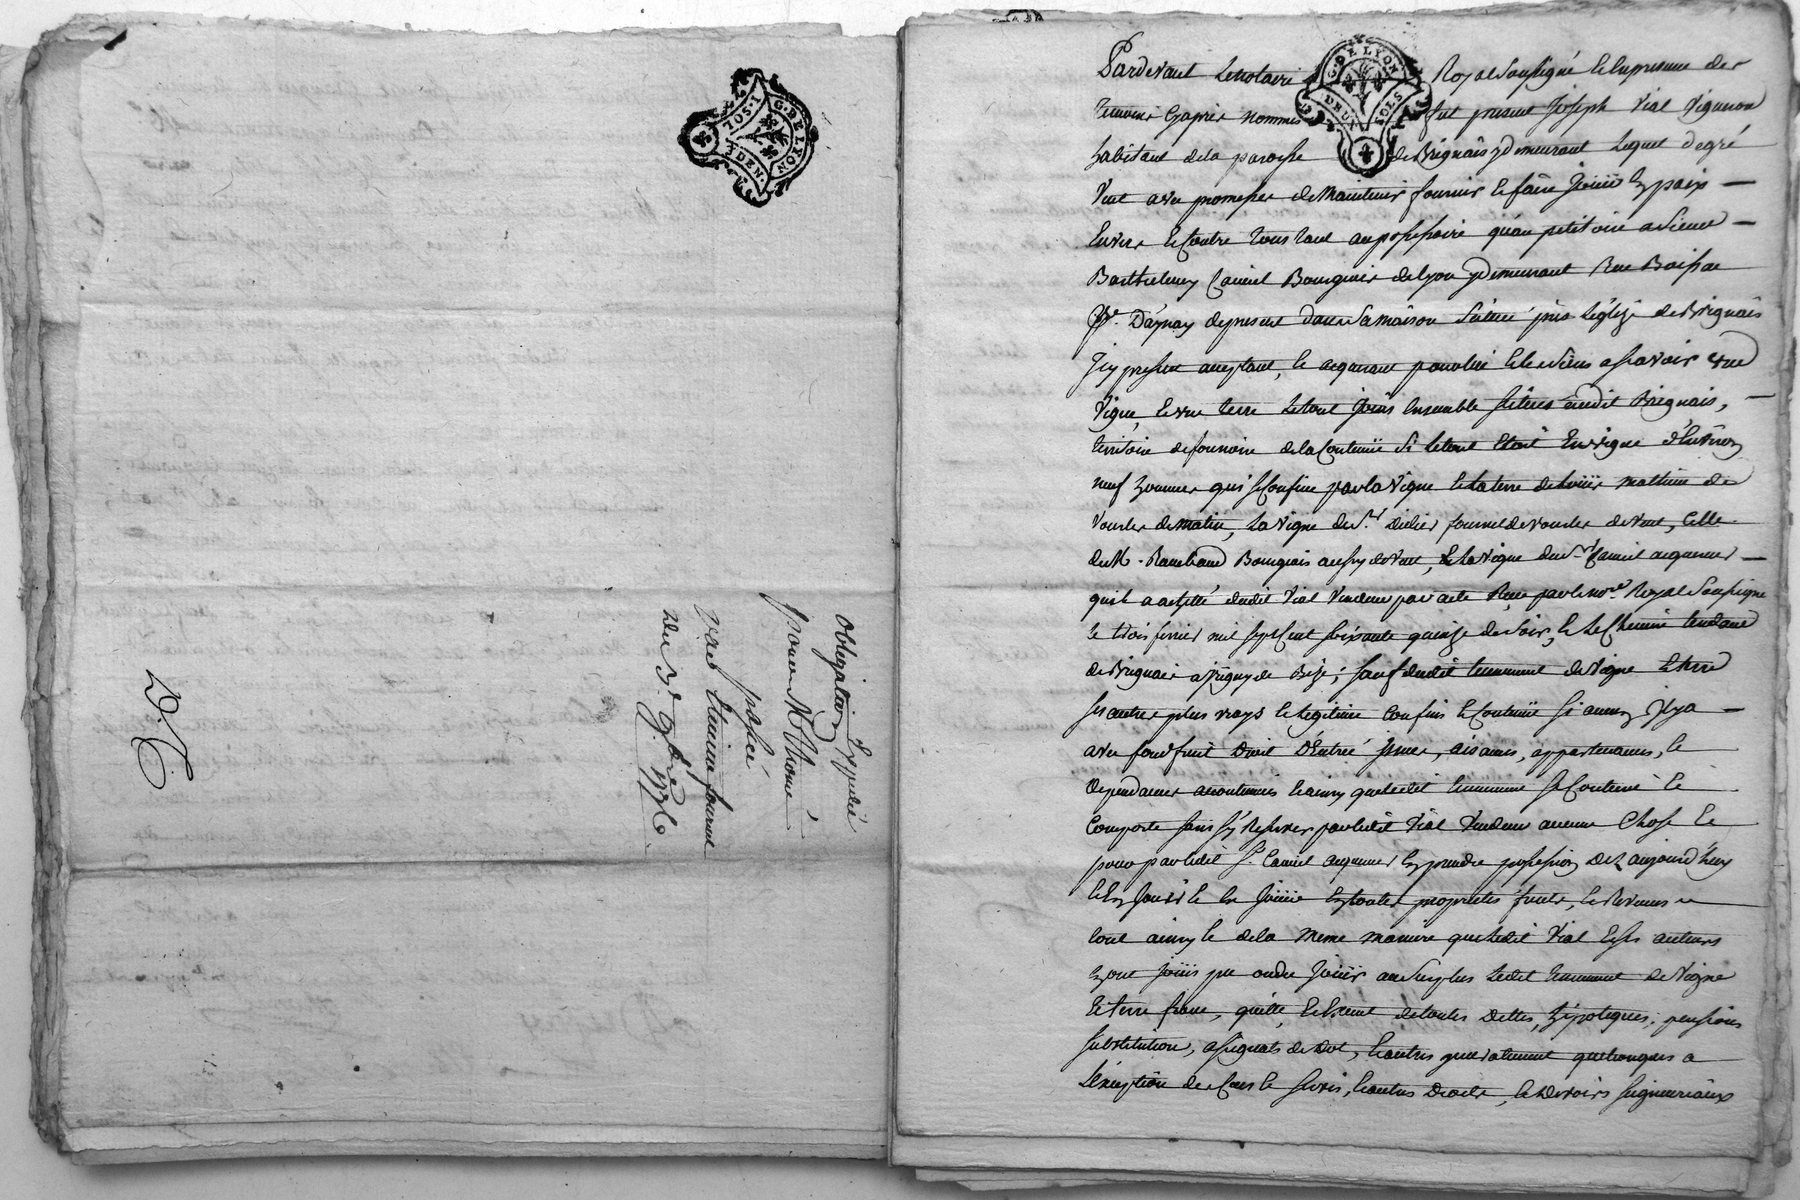 G. DE LYON
1 OS. 1
3 DEN.
Obligation Expediée
pour M. Thomé
passée
par Etienne fournel
Du 3e. 9bre 1776
D. C.
G. DE LYON
DEUX SOLS
Pardevant Le Notaire Royal Soussigné et En presence des
temoins Cy apres nommés fut present Joseph Vial Vigneron
habitant de la paroisse de Brignais y demeurant Lequel de gré
Vend avec promesse de Maintenir fournir et faire Jouir En paix
Envers et Contre tous tant au possessoire qu'au petitoire a Sieur
Barthelemy Bourgeois de Lyon y demeurant Rue Boissac
psse. D'aynay de present dans Sa maison Scituée près L'église de Brignais
Icy present acceptant, et acquerant pour lui et les Siens assavoir Une
Vigne, et une terre Le tout Joint Ensemble Scitués audit Brignais,
territoire de de la Contenüe Si Le tout Etoit En vigne d'Environ
neuf hommes qui se Confine par la Vigne et la terre de Mathieu de
Vourles de matin, La vigne du Sr. Didier fournel de Vourles de Vent, Celle
de M. Bourgeois aussy de Vent, et la Vigne du Sr. acquereur
qu'il a acheté dudit Vial Vendeur par acte Reçu par le nore. Royal Soussigné
le trois fevrier mil sept Cent soixante quinze de Soir, et Le Chemin tendant
de Brignais a Irigny de Bize; sauf dudit tenement de Vigne et terre
ses autres plus vrays et Legitimes Confins et Contenüe Si aucun Il y a
avec fond fruit Droit D'Entrée Issues, aisances, appartenances, et
dependances accoutumées Et ainsy que Ledit tenement Se Contient et
Comporte sans s'y Reserver par Ledit Vial Vendeur aucune Chose Et
pour par Ledit Sr. acquereur En prendre possession Dez aujourd'huy
et En Jouir et En Jouir En toutes proprietés fruits, et Revenus
tout ainsy et de la meme maniere que Ledit Vial Et Ses auteurs
En ont Joüis pu ou du Joüir au Surplus Ledit tenement de Vigne
Et terre franc, quitte, et Exemt de toutes Dettes, hipoteques, pensions
substitution, assignats de dot, Et autres generalement quelconques a
L'exception des Cens et Servis, Et autres Droits, et Devoirs Seigneuriaux